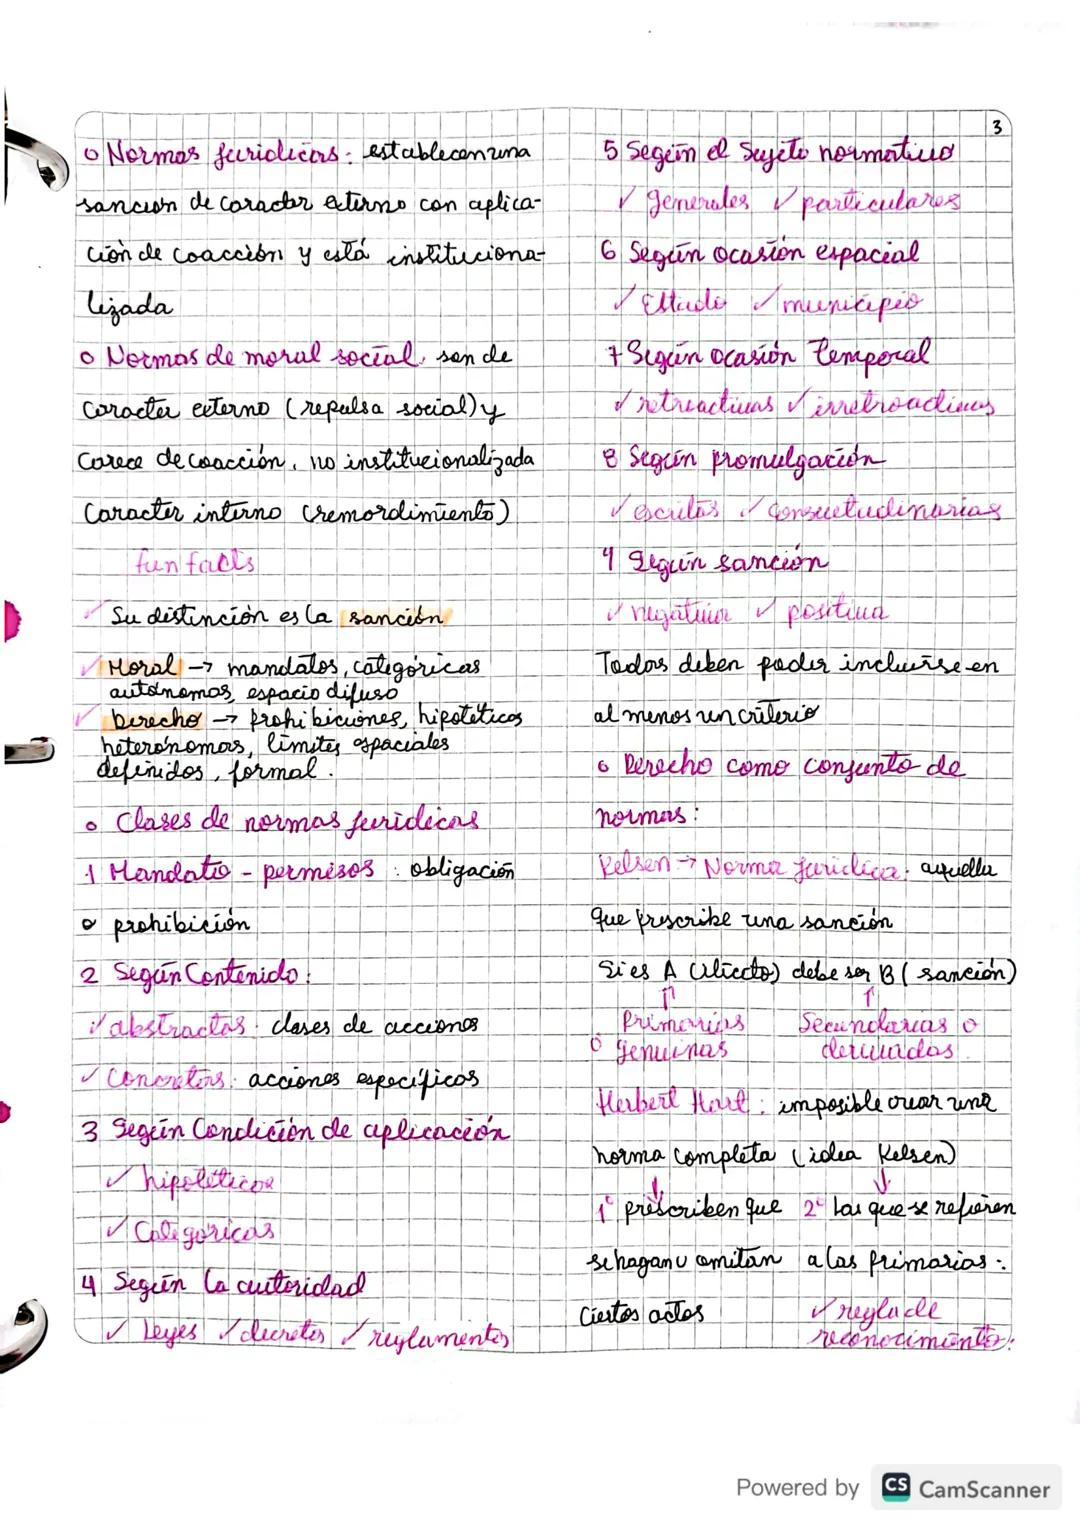 3
o Normas jurídicas: establecen una
sanción de caracter externo con aplica-
ción de coacción y está instituciona-
lizada
o Normas de moral social, son de
caracter externo (repulsa social) y
carece de coacción, no institucionalizada
Caracter interno (remordimiento)
fun facts
✓ Su distinción es la sanción
✓ Moral → mandatos, categóricas
autónomos, espacio difuso
✓ Derecho → prohibiciones, hipotéticos
heterónomas, límites espaciales
definidos, formal.
o Clases de normas jurídicas
1 Mandato - permisos : obligación
o prohibición
2 Según Contenido:
✓ abstractas: clases de acciones
✓ Concretas: acciones específicas
3 Según Condición de aplicación
✓ hipotéticas
✓ Categóricas
4 Según la autoridad
✓ Leyes ✓ decretos ✓ reglamentos
5 Según el Sujeto normativo
✓ generales ✓ particulares
6 Según ocasión espacial
✓ Estado ✓ municipio
7 Según ocasión temporal
✓ retroactivas ✓ irretroactivas
8 Según promulgación
✓ escritas ✓ consuetudinarias
9 Según sanción
✓ negativa ✓ positiva
Todas deben poder incluirse en
al menos un criterio
o Derecho como conjunto de
normas:
Kelsen → Norma jurídica: aquella
que prescribe una sanción
Si es A (ilícito) debe ser B (sanción)
↑ ↑
Primarias Secundarias o
o genuinas derivadas
Herbert Hart: imposible crear una
norma completa (idea Kelsen)
↓ ↓
1° prescriben que 2° las que se refieren
se hagan u omitan a las primarias:
ciertos actos ✓ regla de
reconocimiento:
Powered by CS CamScanner